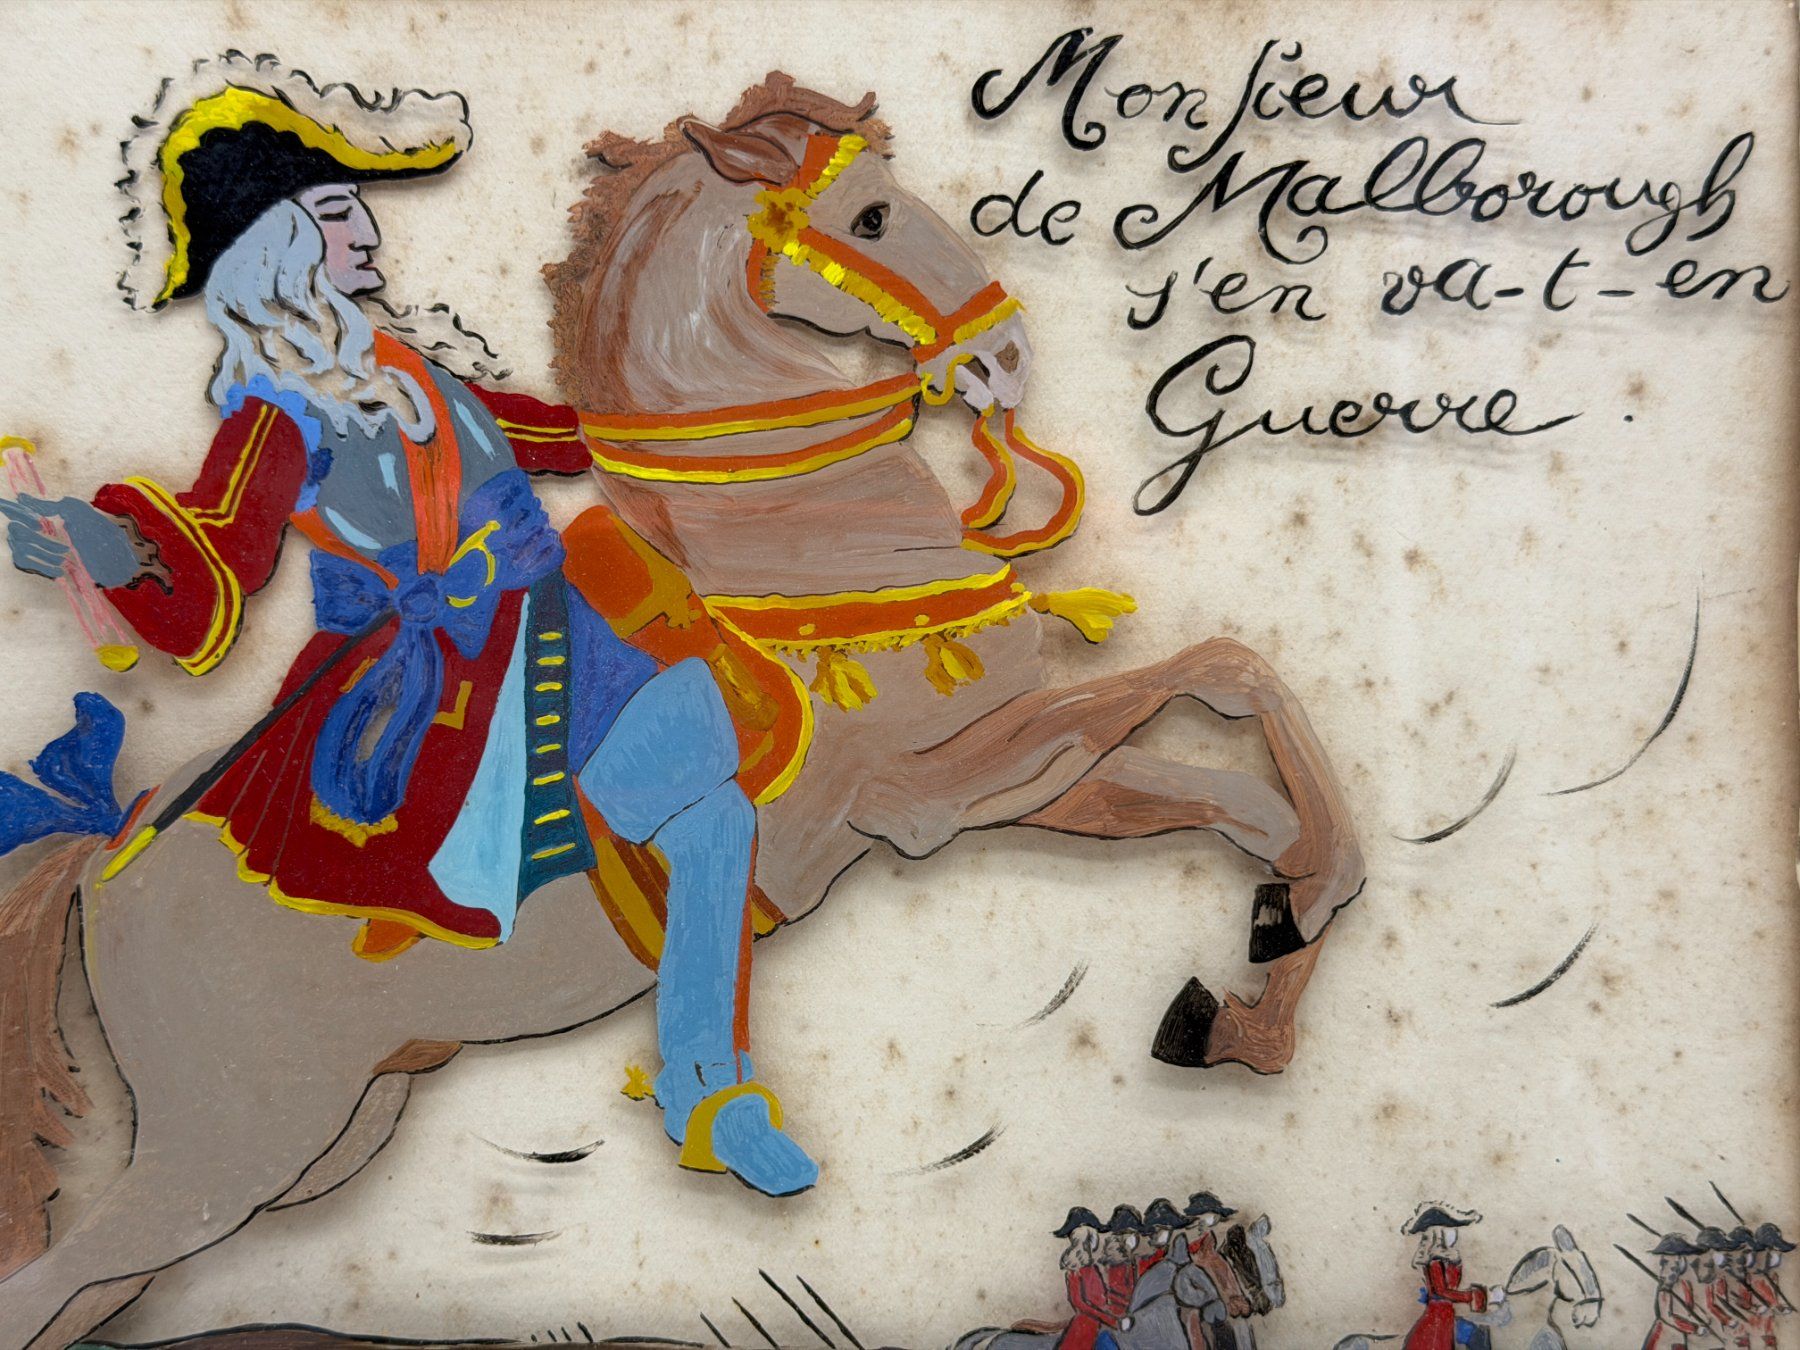 Monsieur
de Malborough
s'en va-t-en
Guerre.